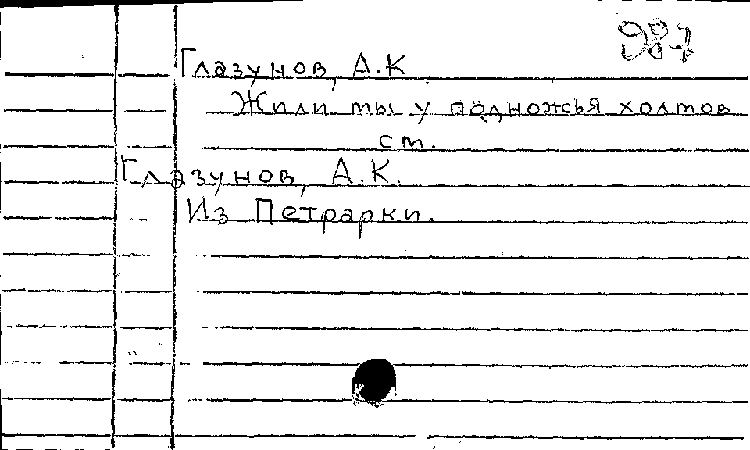 987
Глазунов, А.К
Жили мы у подножья холмов
ст.
Глазунов, А.К.
Из Петрарки.